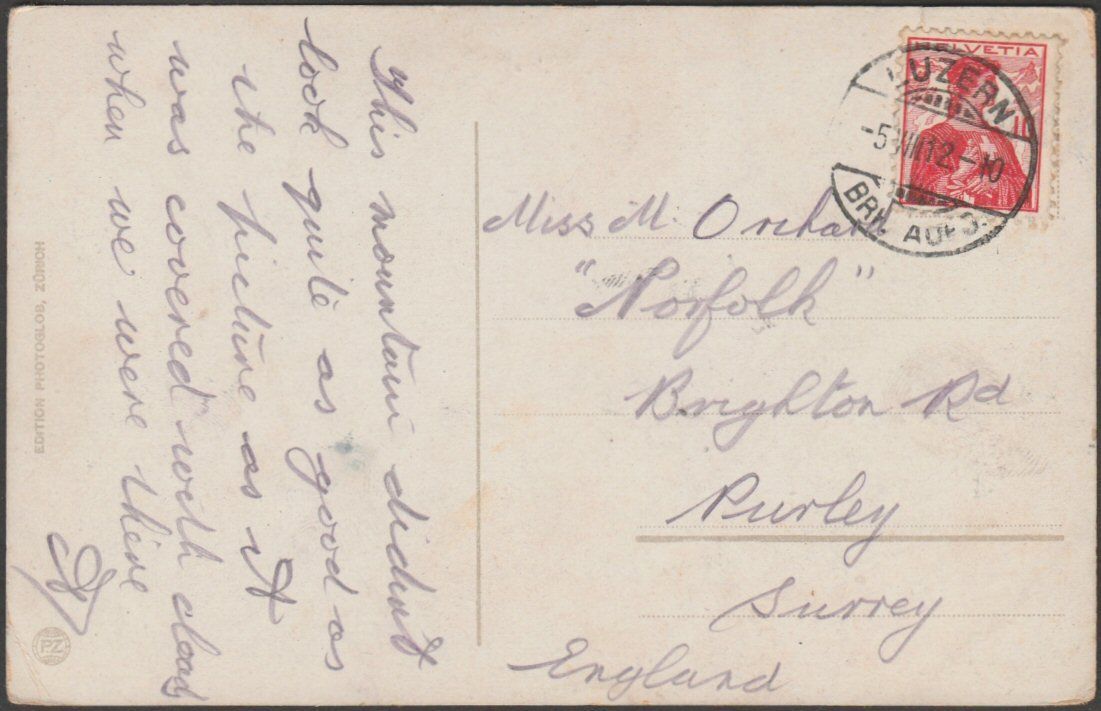 This mountain didnt
look quite as good as
the picture as it
was covered with cloud
when we were there
EDITION PHOTOGLOB, ZÜRICH
PZ
HELVETIA
LUZERN
-5.VIII.12.-10
BRF. AUFG.
Miss M. Orchard
"Norfolk"
Brighton Rd
Purley
Surrey
England